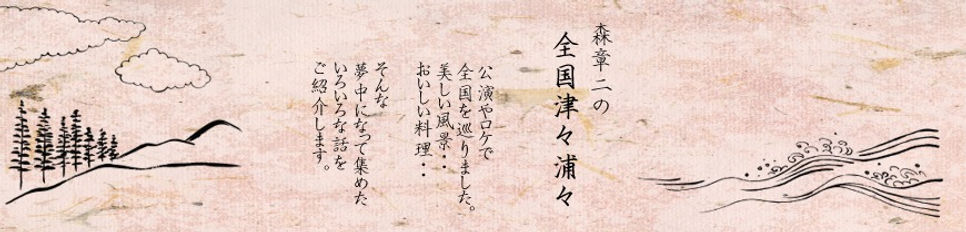 森章二の
全国津々浦々
公演やロケで
全国を巡りました。
美しい風景・・・
おいしい料理・・
そんな
夢中になって集めた
いろいろな話を
ご紹介します。